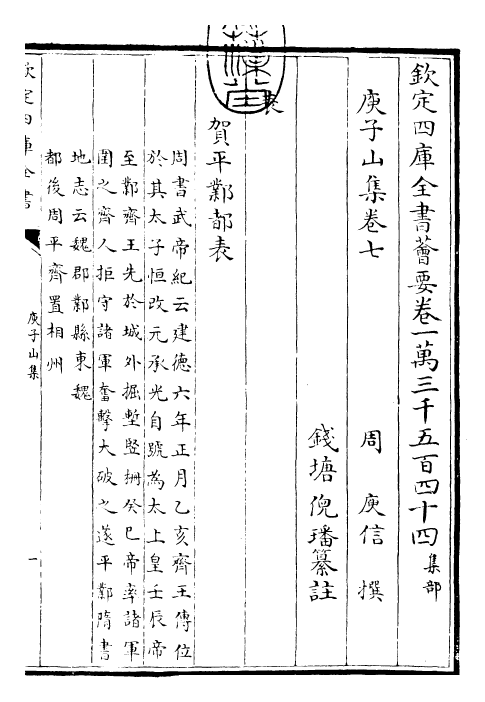 欽定四庫全書薈要卷一萬三千五百四十四集部
庾子山集卷七
周　庾信　撰
錢塘倪璠纂註
表
賀平鄴都表
周書武帝紀云建德六年正月乙亥齊王傳位
於其太子恒改元承光自號為太上皇壬辰帝
至鄴齊王先於城外掘塹竪柵癸巳帝率諸軍
圍之齊人拒守諸軍奮擊大破之遂平鄴隋書
地志云魏郡鄴縣東魏
都後周平齊置相州
欽定四庫全書
庾子山集
一